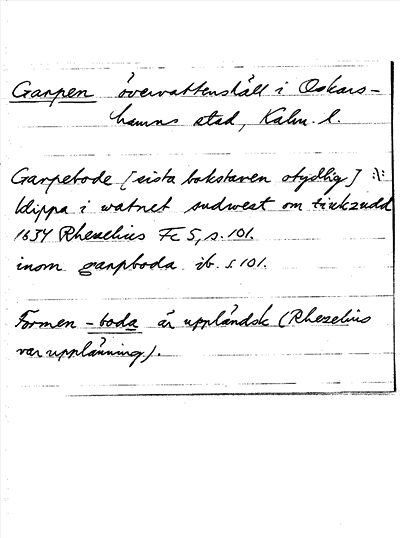 Garpen övervattenshäll i Oskars-
hamns stad, Kalm. l.
Garpebode [sista bokstaven otydlig] :\:
klippa i watnet sudwest om
1634 Rhezelius Fc 5, s. 101.
inom garpboda ib. s. 101.
Formen -boda är uppländsk (Rhezelius
var upplänning).